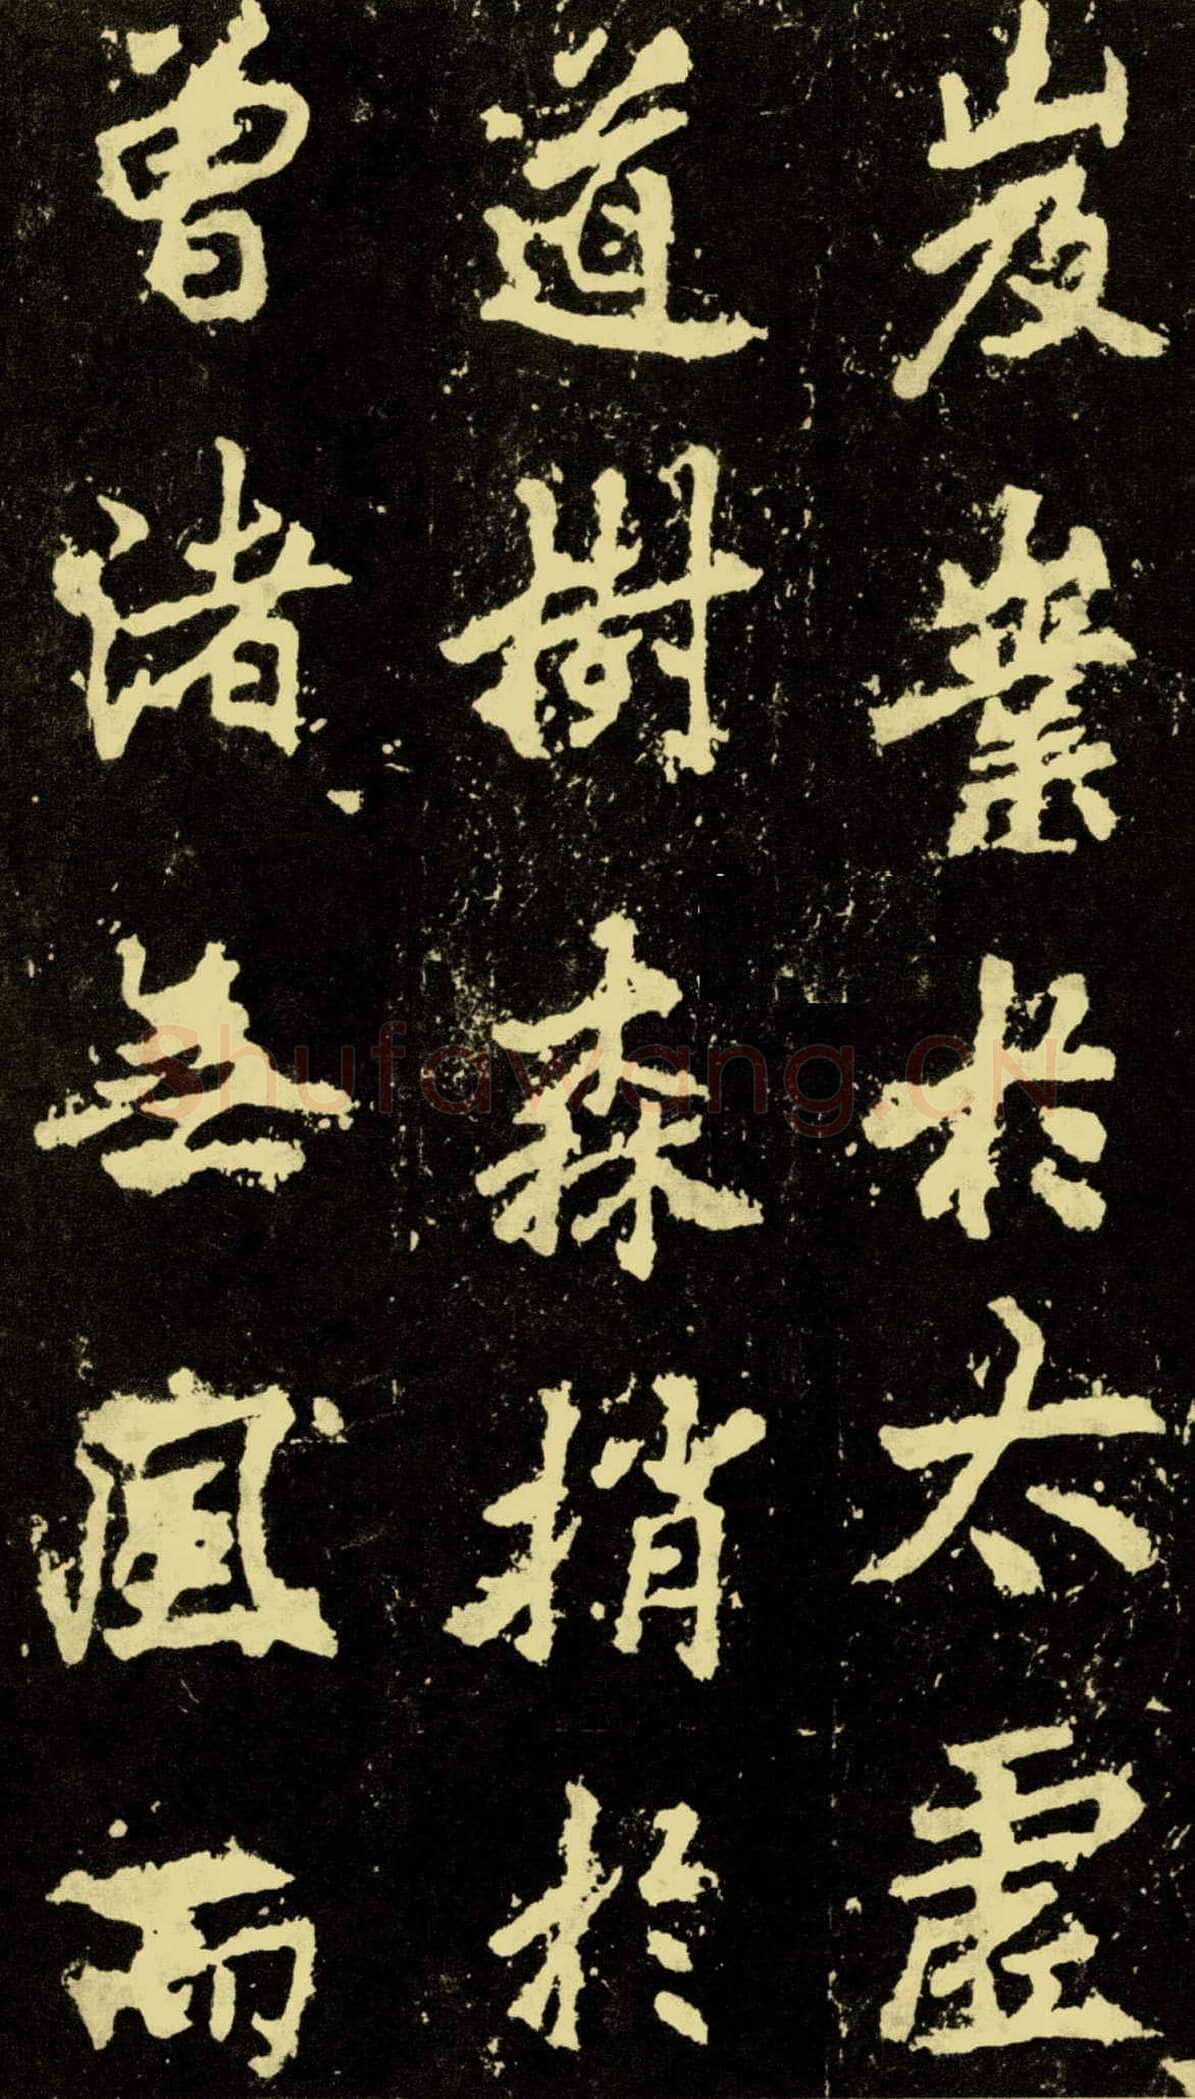 岌嶪於太虛
道樹森梢於
曾渚無風而
Shufawang.CN